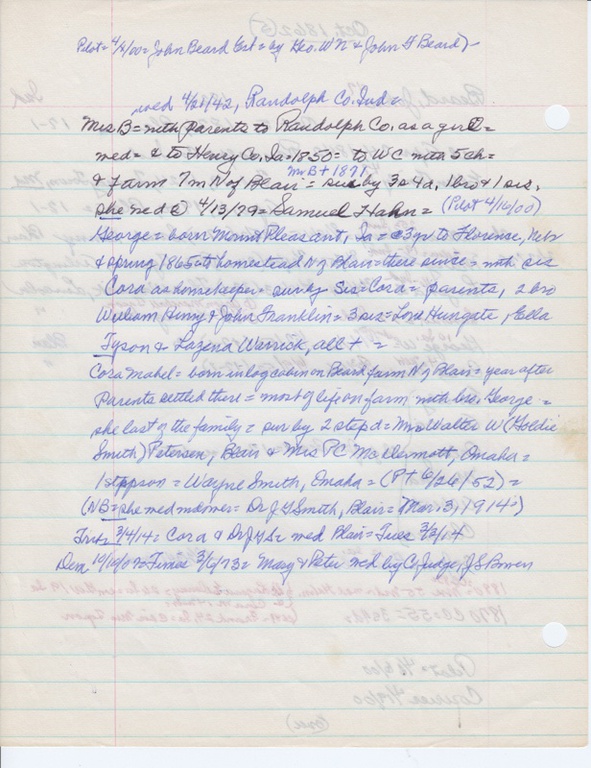 Pilot = 4/5/00 = John Beard Est = by Geo. W N & John F Beard) -
wed 4/21/42, Randolph Co. Ind =
Mrs B = with parents to Randolph Co. as a girl =
med = & to Henry Co. Ia = 1850 = to WC with 5 ch =
Mr B + 1871
& farm 7m N of Blair = sur by 3s 4d, 1 bro & 1 sis.
She med @ 4/13/79 = Samuel Hahn = (Pilot 4/16/00)
George = born Mount Pleasant, Ia = @ 3 yr to Florence, Nebr
& spring 1865 to homestead N of Blair = there since = with sis
Cora as housekeeper = sur by sis = Cora = parents, 2 bro
William Henry & John Franklin = 3 sis = Love Hungate, Ella
Tyson & Lozena Warrick, all + =
Cora Mabel = born in log cabin on Beard farm N of Blair = year after
Parents settled there = most of life on farm with bro. George =
she last of the family = sur by 2 step d = Mrs Walter W (Goldie
Smith) Petersen, Blair & Mrs PC McDermott, Omaha =
1 steppson = Wayne Smith, Omaha = (P + 6/26/52) =
(NB = she med = Dr J Y Smith, Blair = Mar. 3, 1914 =)
Trib = 3/4/14 = Cora & Dr J Y S = med Blair = Tues 3/3/14
= Times 3/6/73 = Mary & Peter med by C. Judge, J S Bowen